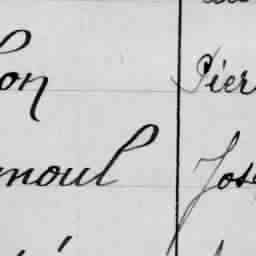 on Pier
moul Jos